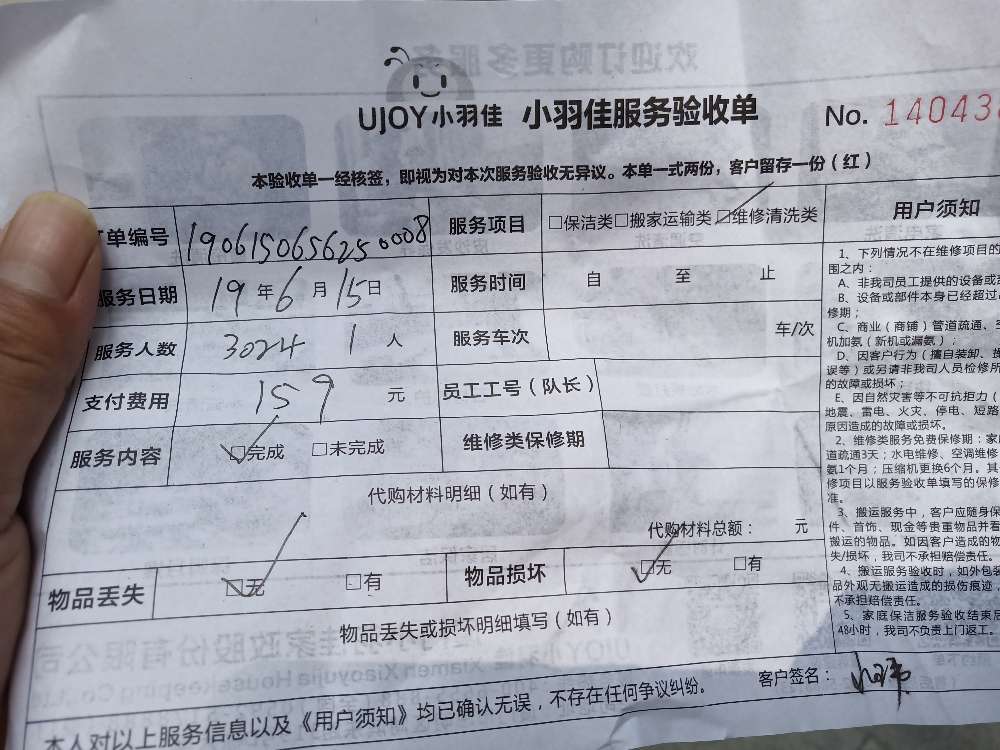 UJOY小羽佳 小羽佳服务验收单 No. 14043
本验收单一经核签，即视为对本次服务验收无异议。本单一式两份，客户留存一份（红）
订单编号 1906150656250008 服务项目 □保洁类□搬家运输类☑维修清洗类
服务日期 19年6月15日 服务时间 自 至 止
服务人数 3024 1 人 服务车次 车/次
支付费用 159 元 员工工号（队长）
服务内容 ☑完成 □未完成 维修类保修期
代购材料明细（如有）
代购材料总额： 元
物品丢失 ☑无 □有 物品损坏 ☑无 □有
物品丢失或损坏明细填写（如有）
本人对以上服务信息以及《用户须知》均已确认无误，不存在任何争议纠纷。 客户签名：
用户须知
1、下列情况不在维修项目的
围之内：
A、非我司员工提供的设备或
B、设备或部件本身已经超过
修期；
C、商业（商铺）管道疏通、
机加氨（新机或漏氨）；
D、因客户行为（擅自装卸、
误等）或另请非我司人员检修所
的故障或损坏；
E、因自然灾害等不可抗拒力（
地震、雷电、火灾、停电、短路
原因造成的故障或损坏。
2、维修类服务免费保修期：家
道疏通3天；水电维修、空调维修
氨1个月；压缩机更换6个月。其
修项目以服务验收单填写的保修
准。
3、搬运服务中，客户应随身保
件、首饰、现金等贵重物品并看
搬运的物品。如因客户造成的物
失/损坏，我司不承担赔偿责任。
4、搬运服务验收时，如外包装
品外观无搬运造成的损伤痕迹，
不承担赔偿责任。
5、家庭保洁服务验收结束后
48小时，我司不负责上门返工。